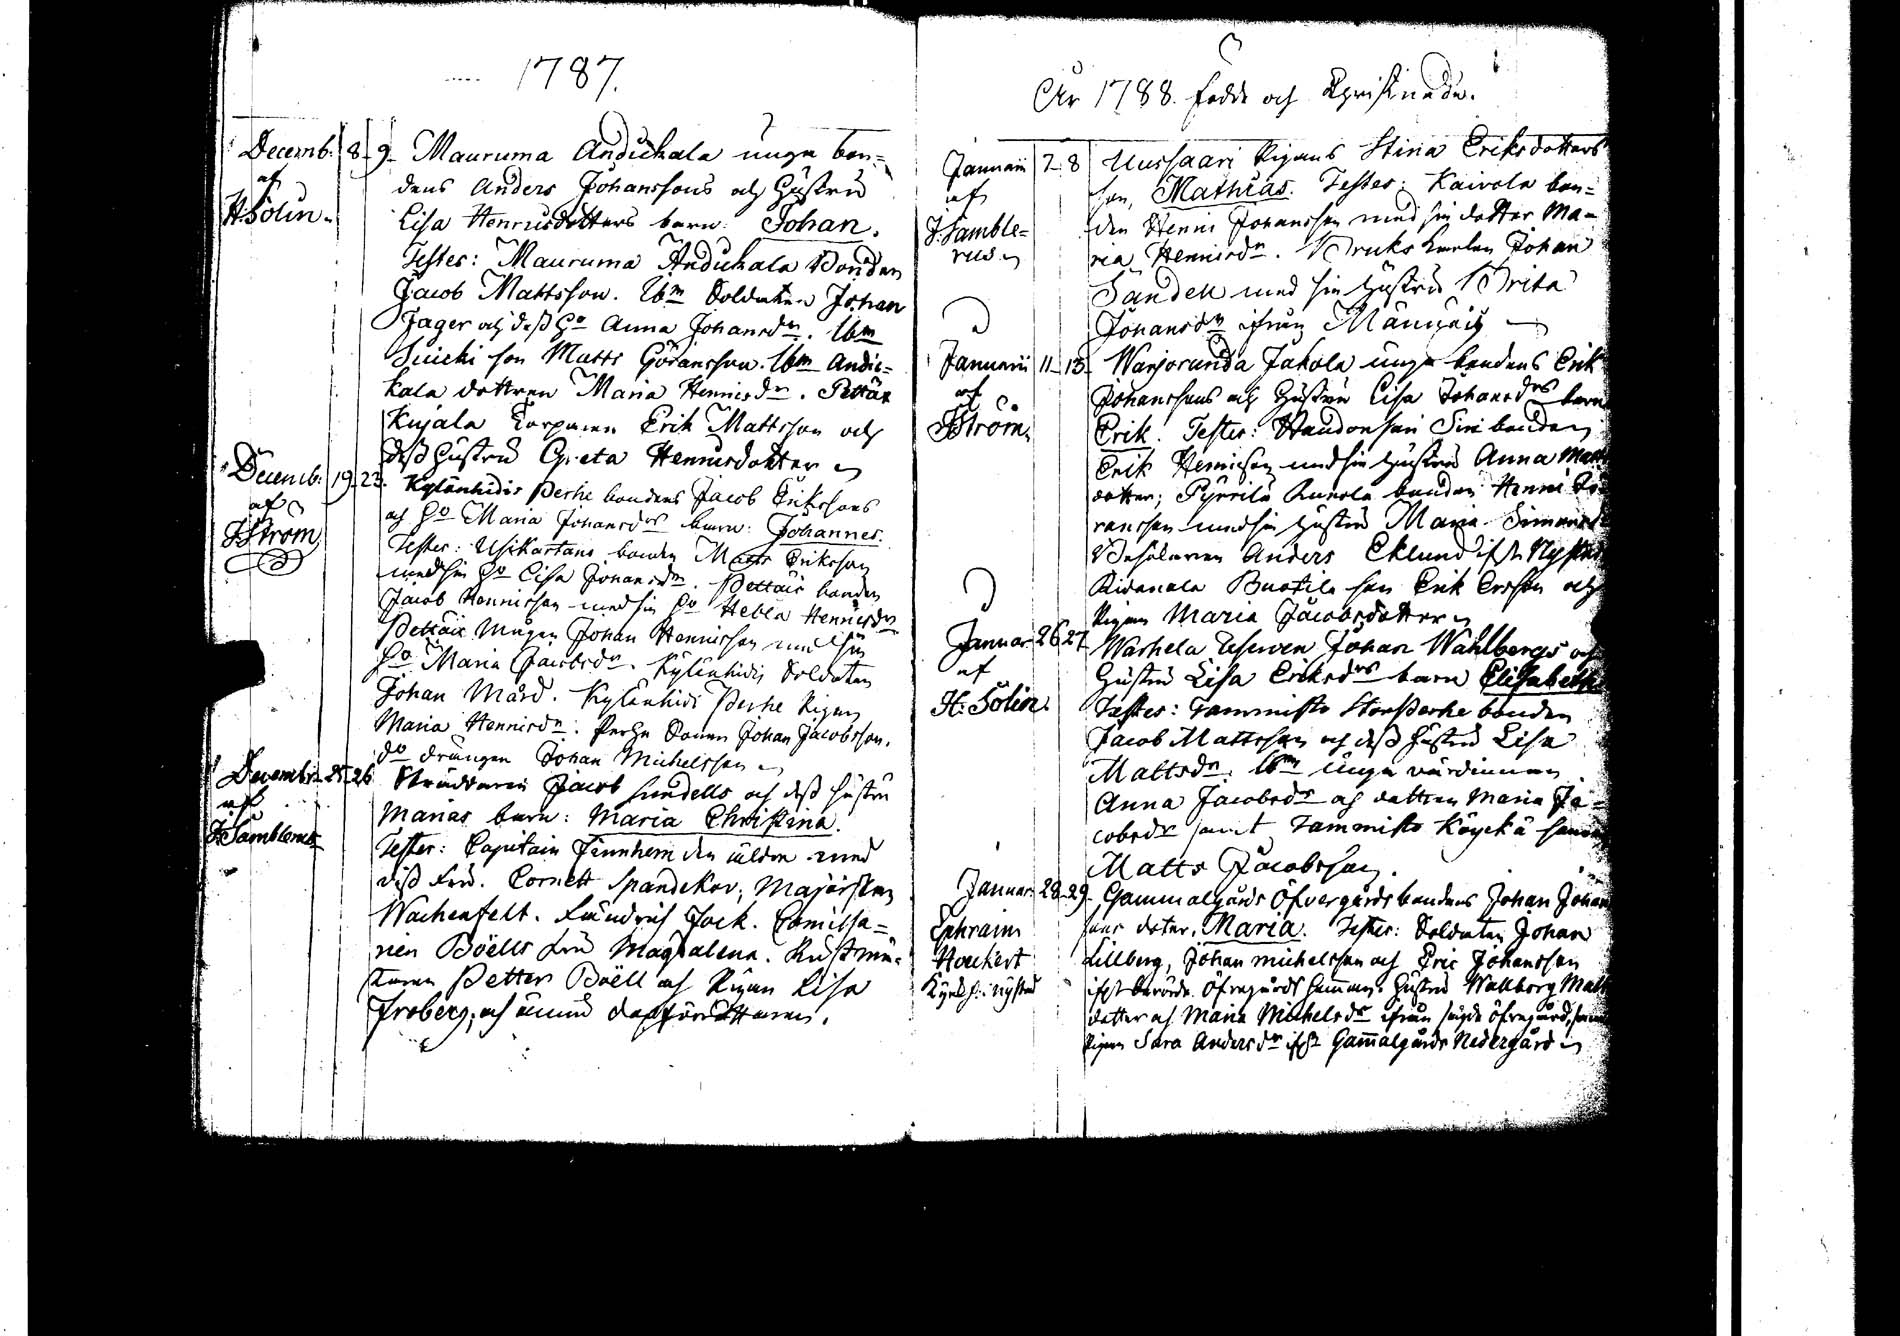 1787.
Decemb. 8 9 Mauruma Andickala unga bon=
af dens Anders Johanssons och Hustru
H: Solin. Lisa Henricsdotters barn: Johan.
Testes: Mauruma Andickala Bonden
Jacob Mattsson. Ibm Soldaten Johan
Jager och dess Ho Anna Johansdr. Ibm
son Matts Göransson. Ibm Andic=
kala dottren Maria Henricsdr.
Kujala Torparen Erik Mattsson och
dess Hustru Greta Henricsdotter
Decemb: 19 23. Kylänhidis Perhe bondens Jacob Erikssons
af och Ho Maria Johansdrs barn: Johannes.
J Ström Testes: Usikartano bonden Matts Eriksson
med sin Ho Lisa Johansdr. Pettäis bonden
Jacob Henricsson med sin Ho Hebla Henricsdr
Pettäis Mågen Johan Henricsson med sin
Ho Maria Jacobsdr. Kylänhidis Soldaten
Johan Mård. Kylänhidi Perhe Pigan
Maria Henricsdr. Perhe Sonen Johan Jacobsson.
do drängen Johan Michelsson
Decembr 25 26 Jacob Sundells och dess hustru
af Marias barn: Maria Christina.
J: Samblerus Testes: Capitain Finnhem den äldre med
dess fru. Cornett Spandekov, Majorskan
Wachenfelt. Fändrich Jack. Comissa=
rien Böells fru Magdalena. Rustmä=
staren Petter Böell och Pigan Lisa
Froberg, och ännu

År 1788. födde och Christnade.
Januarii 7 8 Uussaari Pigans Stina Eriksdotters
af son, Mathias. Testes: Kaivola bon=
J: Samble= den Henric Johansson med sin dotter Ma=
rus ria Henricsdr. Bruks karlen Johan
Sandell med sin Hustru Brita
Johansdr ifrån
Januarii 11 13 Warjoranda Jakola unga bondens Erik
af Johanssons och Hustru Lisa Johansdrs barn
J Ström Erik. Testes: Haudonsari Siri bonden
Erik Henricsson med sin Hustru Anna Matts
dotter; Pyrrilä Runola bonden Henric Gö
ransson med sin Hustru Maria Simonsd
Anders Eklund ifr Nystad
son Erik Ersson och
Pigan Maria Jacobsdotter
Januar 26 27 Warhela Johan Wahlbergs och
af Hustru Lisa Eriksdrs barn Elisabeth
H: Solin. Testes: Tammisto Storperhe bonden
Jacob Mattsson och dess Hustru Lisa
Mattsdr. Ibm unga värdinnan
Anna Jacobsdr och dottren Maria Ja=
cobsdr samt Tammisto Köyckä
Matts Jacobsson.
Januar. 28 29. Gammalgårds Öfvergårds bondens Johan Johans
Ephraim sons doter, Maria. Testes: Soldaten Johan
Hoeckert Lillberg, Johan Michelsson och Eric Johansson
Nystad Öfregårds hemman. Hustru Wallborg Matts
dotter och Maria Michelsdr ifrån Öfregård, samt
Pigan Sara Andersdr Gam̄algårds Nedergård